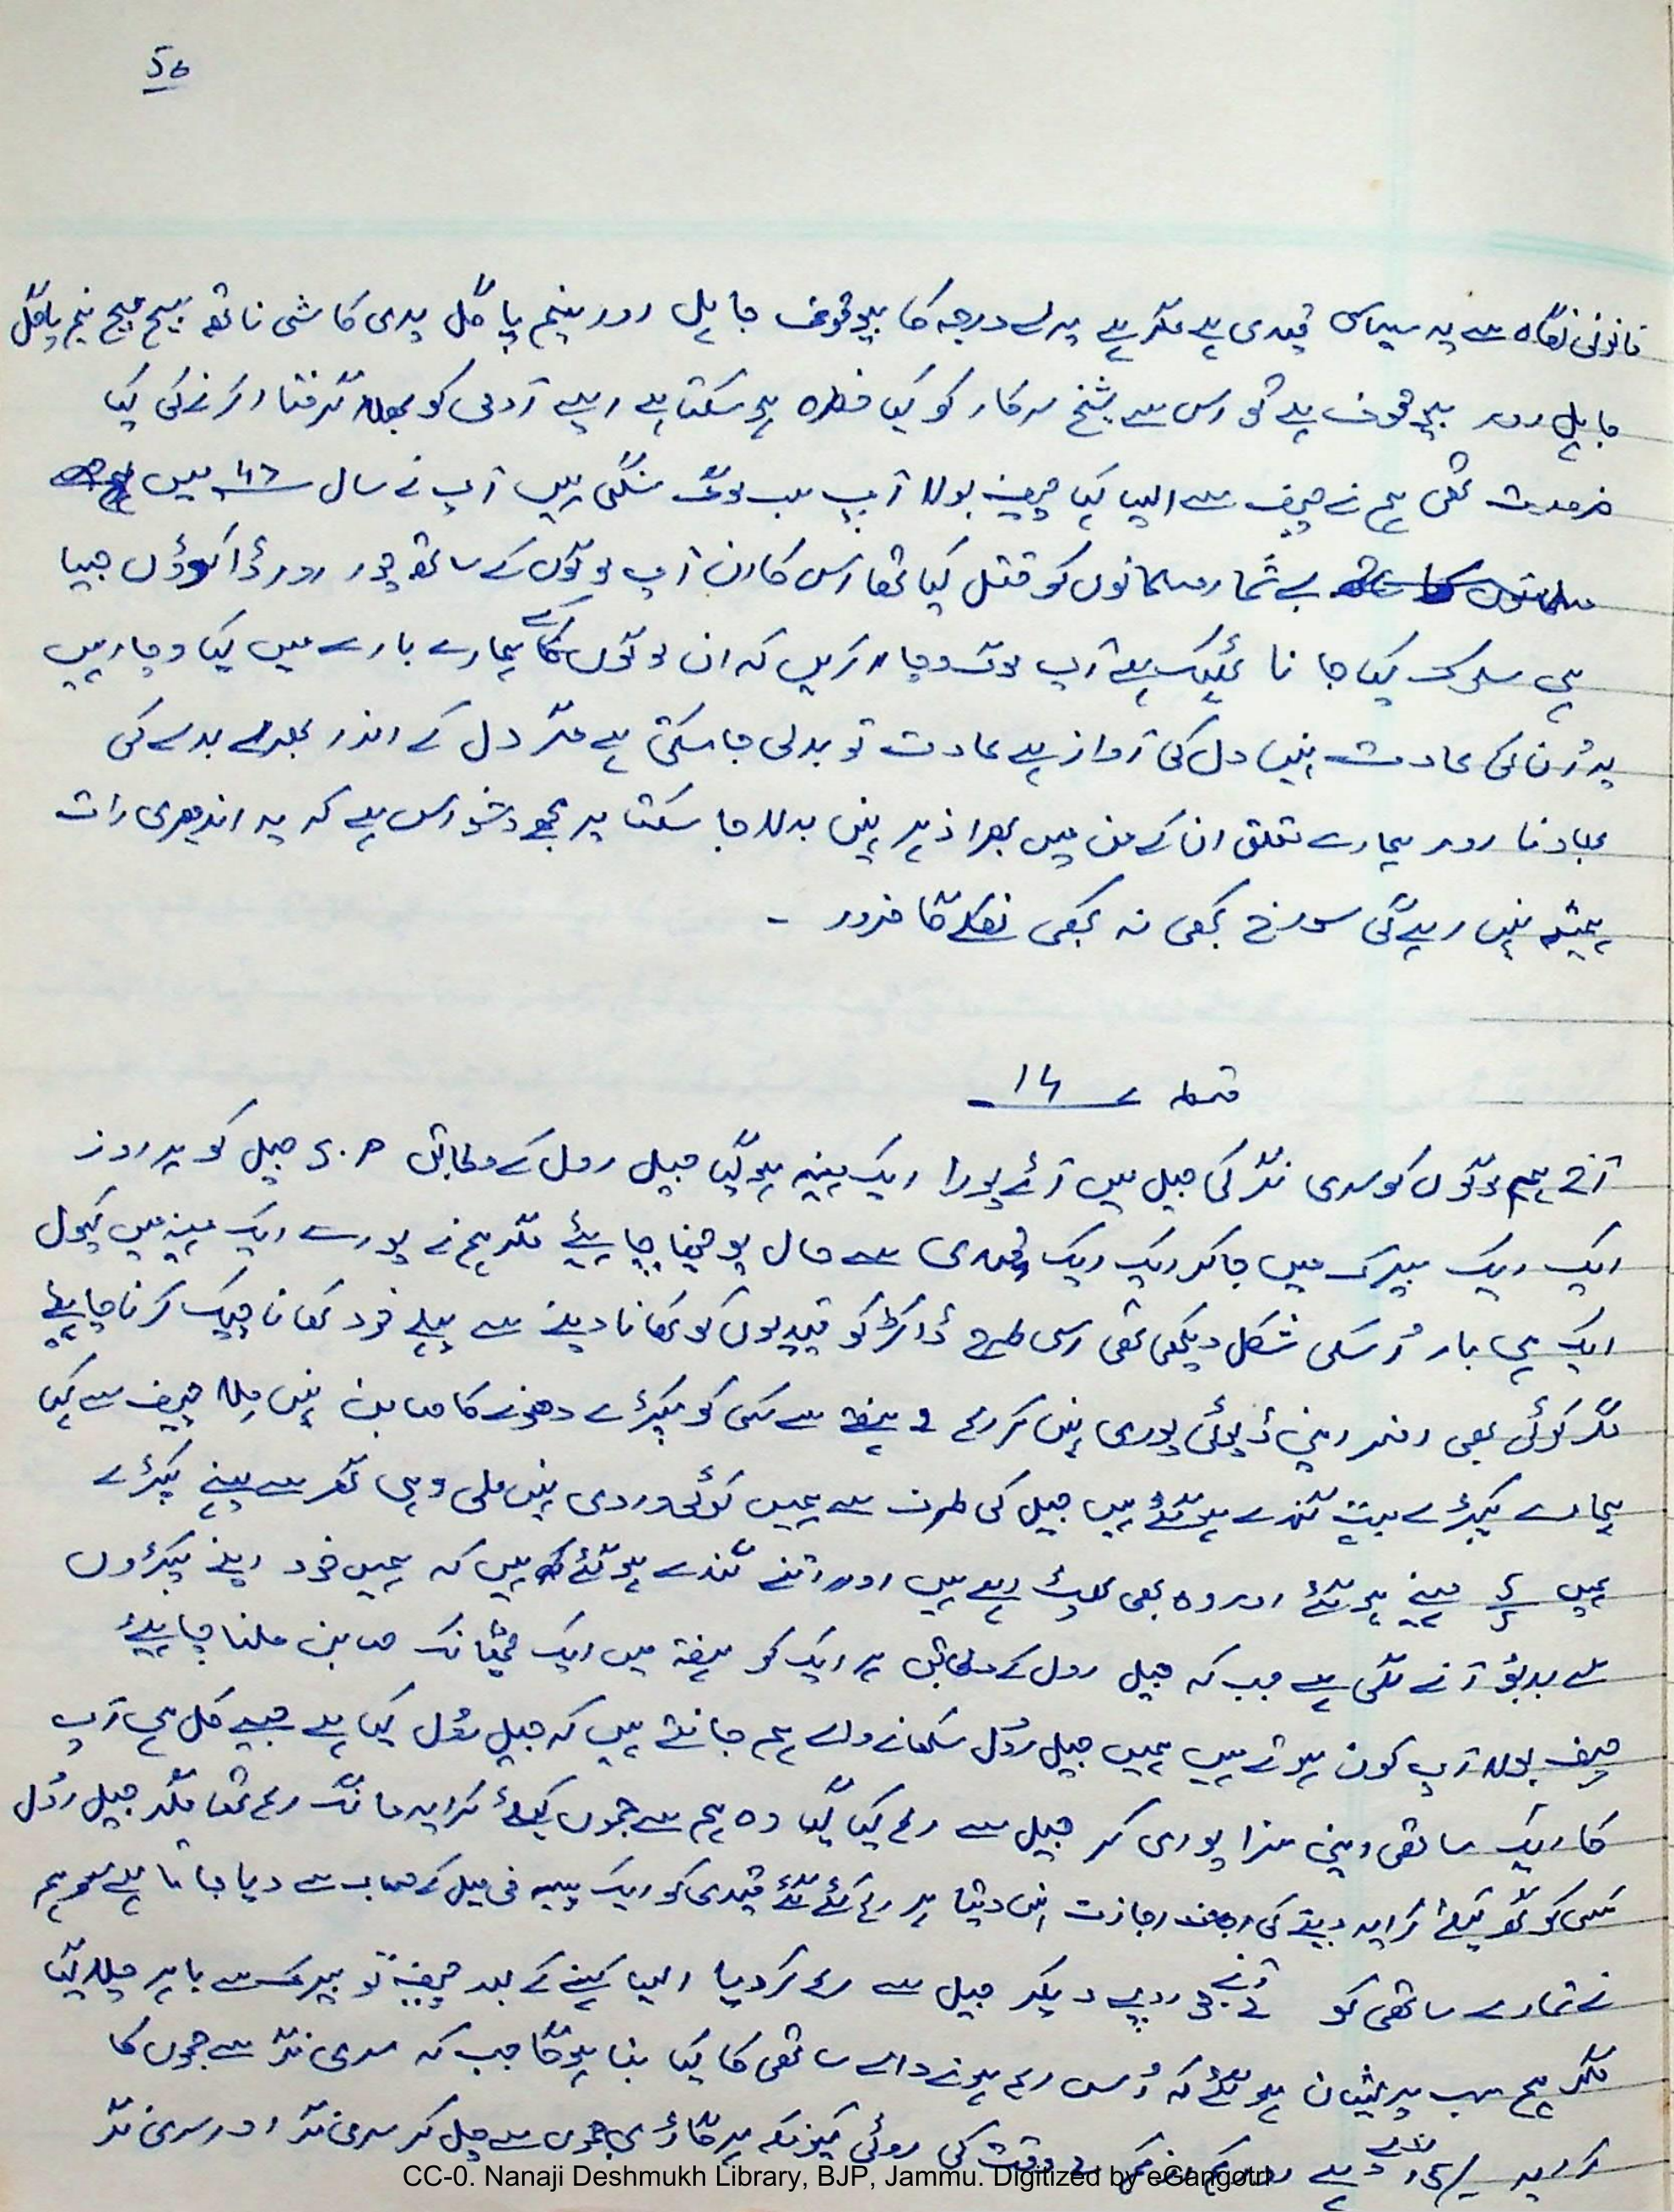 56
قانونی نگاہ سے یہ سیاسی قیدی ہے مگر ہے پرلے درجہ کا بیوقوف جاہل اور نیم پاگل ہری کاشی ناتھ نیم پاگل
جاہل اور بیوقوف ہے تو اس سے شیخ سرکار کو کیا خطرہ ہو سکتا ہے ایسے آدمی کو بھلا گرفتار کرنے کی کیا
ضرورت تھی ہم نے چیف سے ایسا کہا چیف بولا آپ سب لوگ سنگی ہیں آپ نے سال 47 میں
بے شمار مسلمانوں کو قتل کیا تھا اس کارن آپ لوگوں کے ساتھ چور اور ڈاکوؤں جیسا
ہی سلوک کیا جانا ٹھیک ہے آپ لوگ وچار کریں کہ ان لوگوں کے ہمارے بارے میں کیا وچار ہیں
یہ اُن کی عادت نہیں دل کی آواز ہے عادت تو بدلی جا سکتی ہے مگر دل کے اندر بھرے بدلے کی
بھاونا اور ہمارے متعلق ان کے من میں بھرا ذہر نہیں بدلا جا سکتا پر مجھے وشواس ہے کہ یہ اندھیری رات
ہمیشہ نہیں رہے گی سورج کبھی نہ کبھی نکلے گا ضرور -
قسط 14
آج ہم لوگوں کو سری نگر کی جیل میں آئے پورا ایک مہینہ ہو گیا جیل رول کے مطابق جیل کو ہر روز
ایک ایک بیرک میں جا کر ایک ایک قیدی سے حال پوچھنا چاہیئے مگر ہم نے پورے ایک مہینہ میں کیول
ایک ہی بار اُسکی شکل دیکھی تھی اسی طرح ڈاکٹر کو قیدیوں کو کھانا دینے سے پہلے خود کھانا چیک کرنا چاہیئے
مگر کوئی بھی افسر اپنی ڈیوٹی پوری نہیں کر رہا ہفتے سے کسی کو کپڑے دھونے کا صابن نہیں ملا چیف سے کہا
ہمارے کپڑے بہت گندے ہو گئے ہیں جیل کی طرف سے ہمیں کوئی وردی نہیں ملی وہی گھر سے پہنے کپڑے
ہمیں 5 مہینے ہو گئے اور وہ بھی پھٹ رہے ہیں اور اتنے گندے ہو گئے ہیں کہ ہمیں خود اپنے کپڑوں
سے بدبو آنے لگی ہے جب کہ جیل رول کے مطابق ہر ایک کو ہفتہ میں ایک چھٹانک صابن ملنا چاہیئے
چیف بولا آپ کون ہوتے ہیں ہمیں جیل رُول سکھانے والے ہم جانتے ہیں کہ جیل رُول کیا ہے جیسے کل ہی آپ
کا ایک ساتھی اپنی سزا پوری کر جیل سے رہا کیا گیا وہ ہم سے جموں کیلئے کرایہ مانگ رہا تھا مگر جیل رُول
کسی کو گھر کیلئے کرایہ دینے کی اجازت نہیں دیتا پر رہا کئے گئے قیدی کو ایک پیسہ فی میل کے حساب سے دیا جاتا ہے سو ہم
نے تمہارے ساتھی کو 3 روپے دیکر جیل سے رہا کر دیا ایسا کہنے کے بعد چیف تو بیرک سے باہر چلا گیا
مگر ہم سب پریشان ہو گئے کہ اُس رہا ہونے والے ساتھی کا کیا بنا ہو گا جب کہ سری نگر سے جموں کا
کرایہ ہے اور کم از کم وقت کی روٹی کیونکہ ہر گاڑی جموں سے چل کر سری نگر اور سری نگر
CC-0. Nanaji Deshmukh Library, BJP, Jammu. Digitized by eGangotri